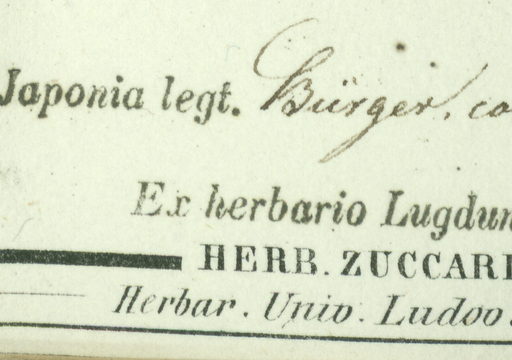 Japonia legt. Bürger. co
Ex herbario Lugdun
HERB. ZUCCARI
Herbar. Univ. Ludov.